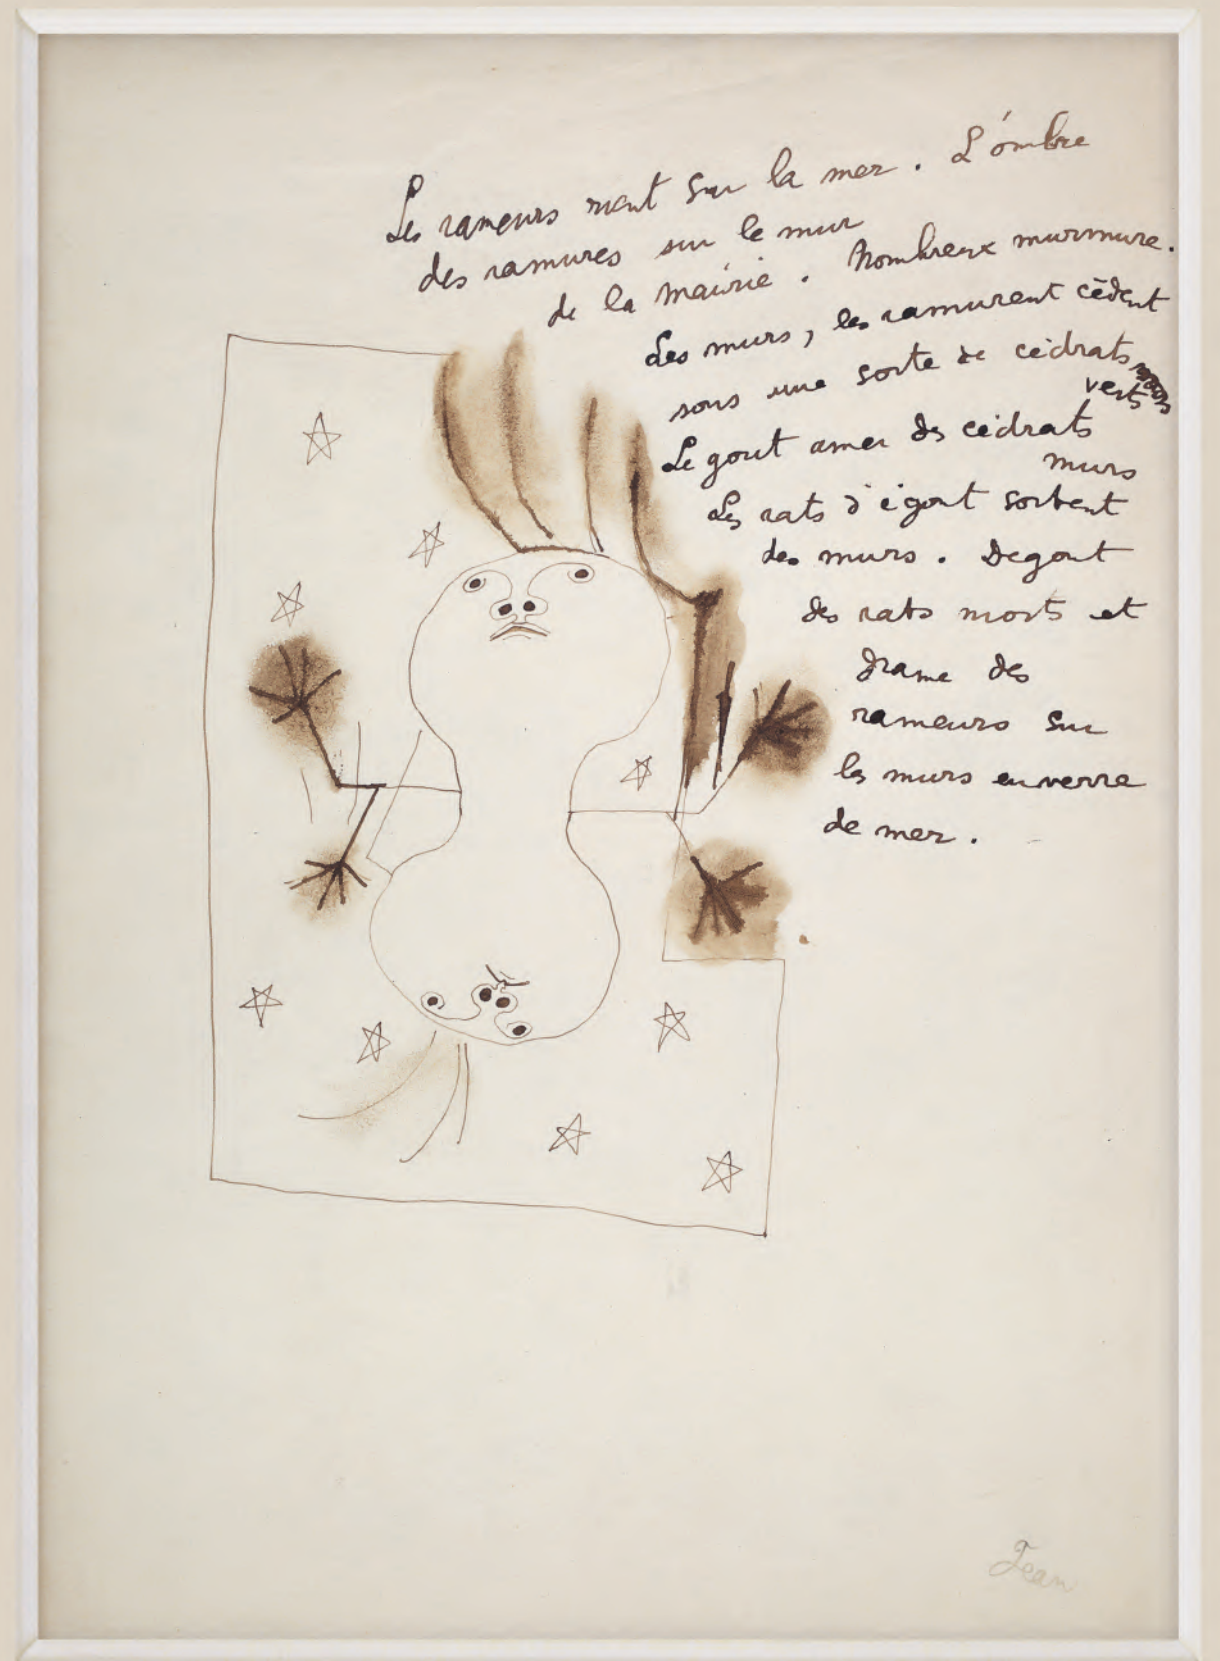 Les rameurs rient sur la mer. L'ombre
des ramures sur le mur
de la mairie. Nombreux murmure.
Les murs, les ramurent cèdent
sous une sorte de cédrats
verts
Le gout amer des cédrats
murs
Les rats d'égout sortent
des murs. Degout
des rats morts et
drame des
rameurs sur
les murs en verre
de mer.
Jean